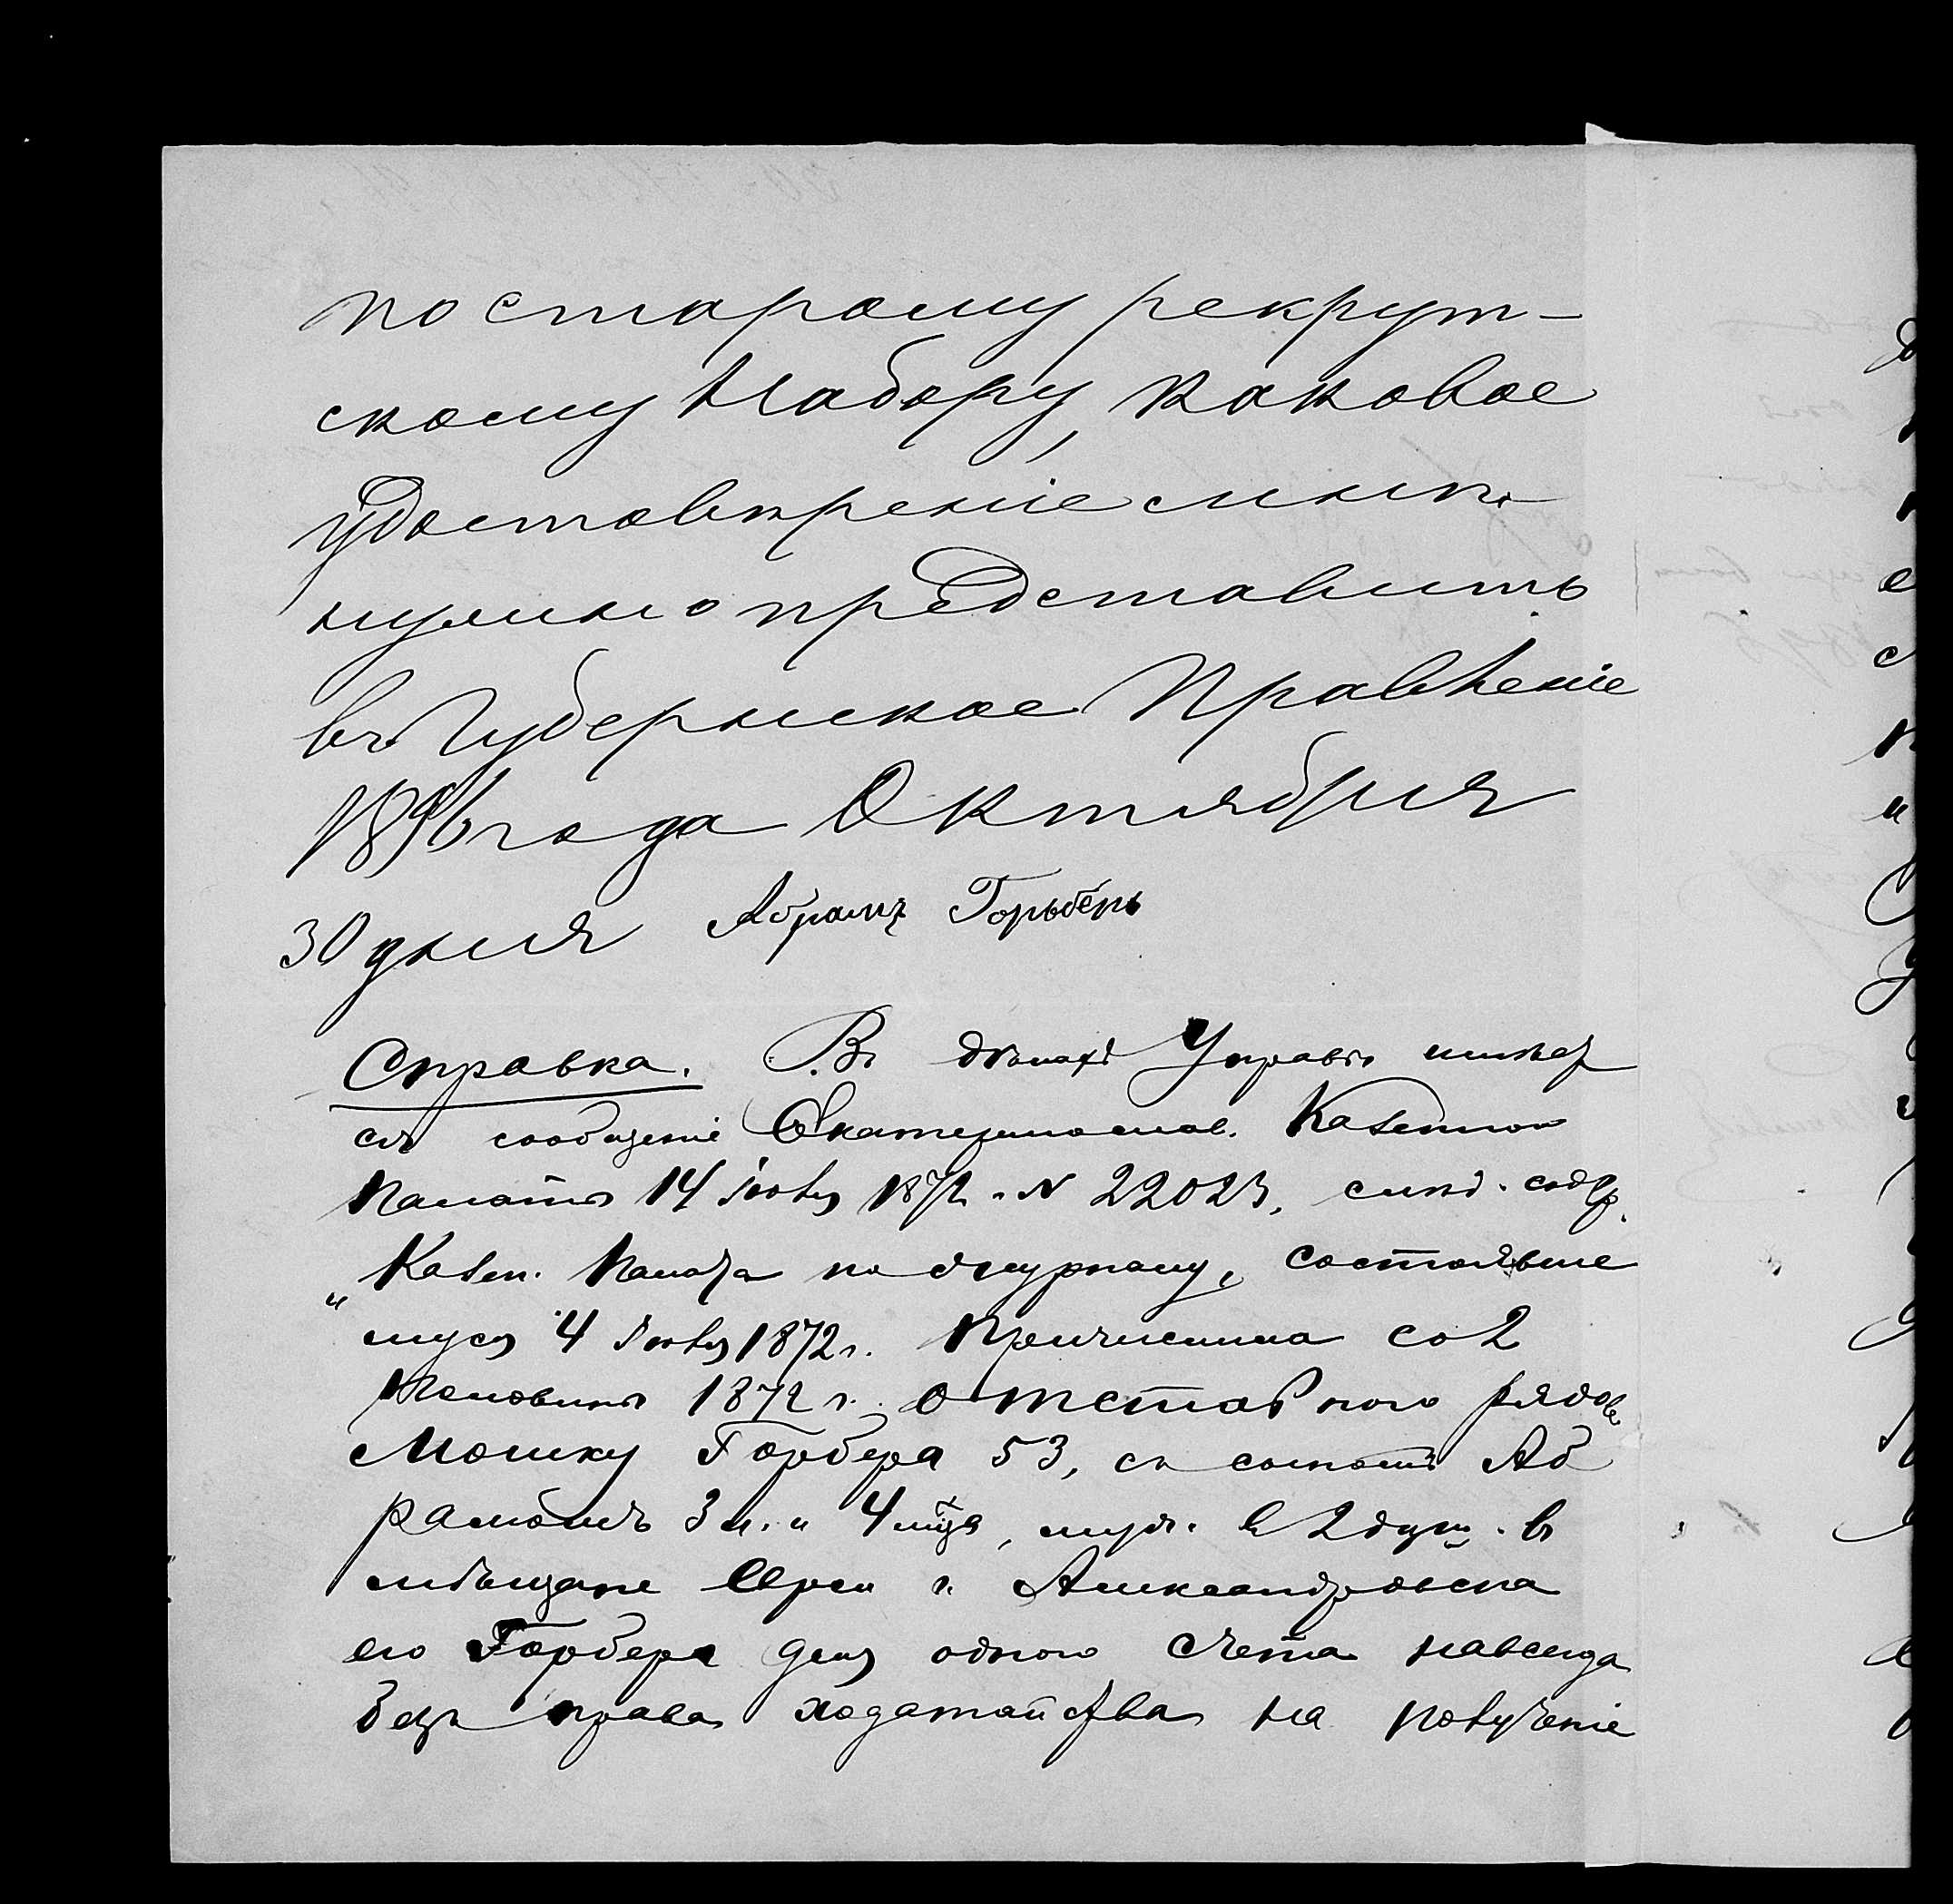 по старому рекрут-
скому Набору, каковое
удостовѣреніе мнѣ
нужно представить
въ Губернское Правленіе
1896 года Октября
30 дня Абрамъ Горьберъ
Справка. Въ дѣлахъ Управы имѣет
ся сообщеніе Екатеринослав. Казенной
Палаты 14 Іюля 1872 г. N 22023, слѣд. содер.
"Казен. Палата по журналу, состоявше
муся 4 Іюля 1872 г. Причислила со 2
половины 1872 г. отставного рядов.
Мошку Горбера 53, съ сыномъ Аб
рамомъ 3 л. и 4 мцв, муж. п. 2 душ. въ
мѣщане Евреи г. Александровска
его Горбера для одного счета навсегда
безъ права ходатайства на полученіе